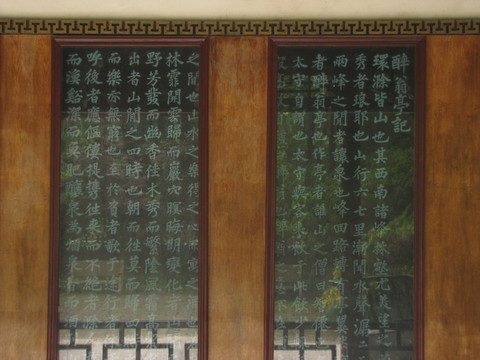 醉翁亭記
環滁皆山也其西南諸峰林壑尤美望之
秀者琅耶也山行六七里漸聞水聲潺
兩峰之間者讓泉也峰回路轉有亭翼
者醉翁亭也作亭者誰山之僧曰智僊
太守自謂也太守與客來飲于此飲少
之間也山水之樂得之心而寓之酒也
林霏開雲歸而巖穴暝晦明變化者山
野芳發而幽香佳木秀而繁陰風霜高
出者山間之四時也朝而往莫而歸四
而樂亦無窮也至於負者歌于途行者
呼後者應傴僂提攜往來而不絕者滁
而漁谿深而魚肥釀泉為酒泉香而酒